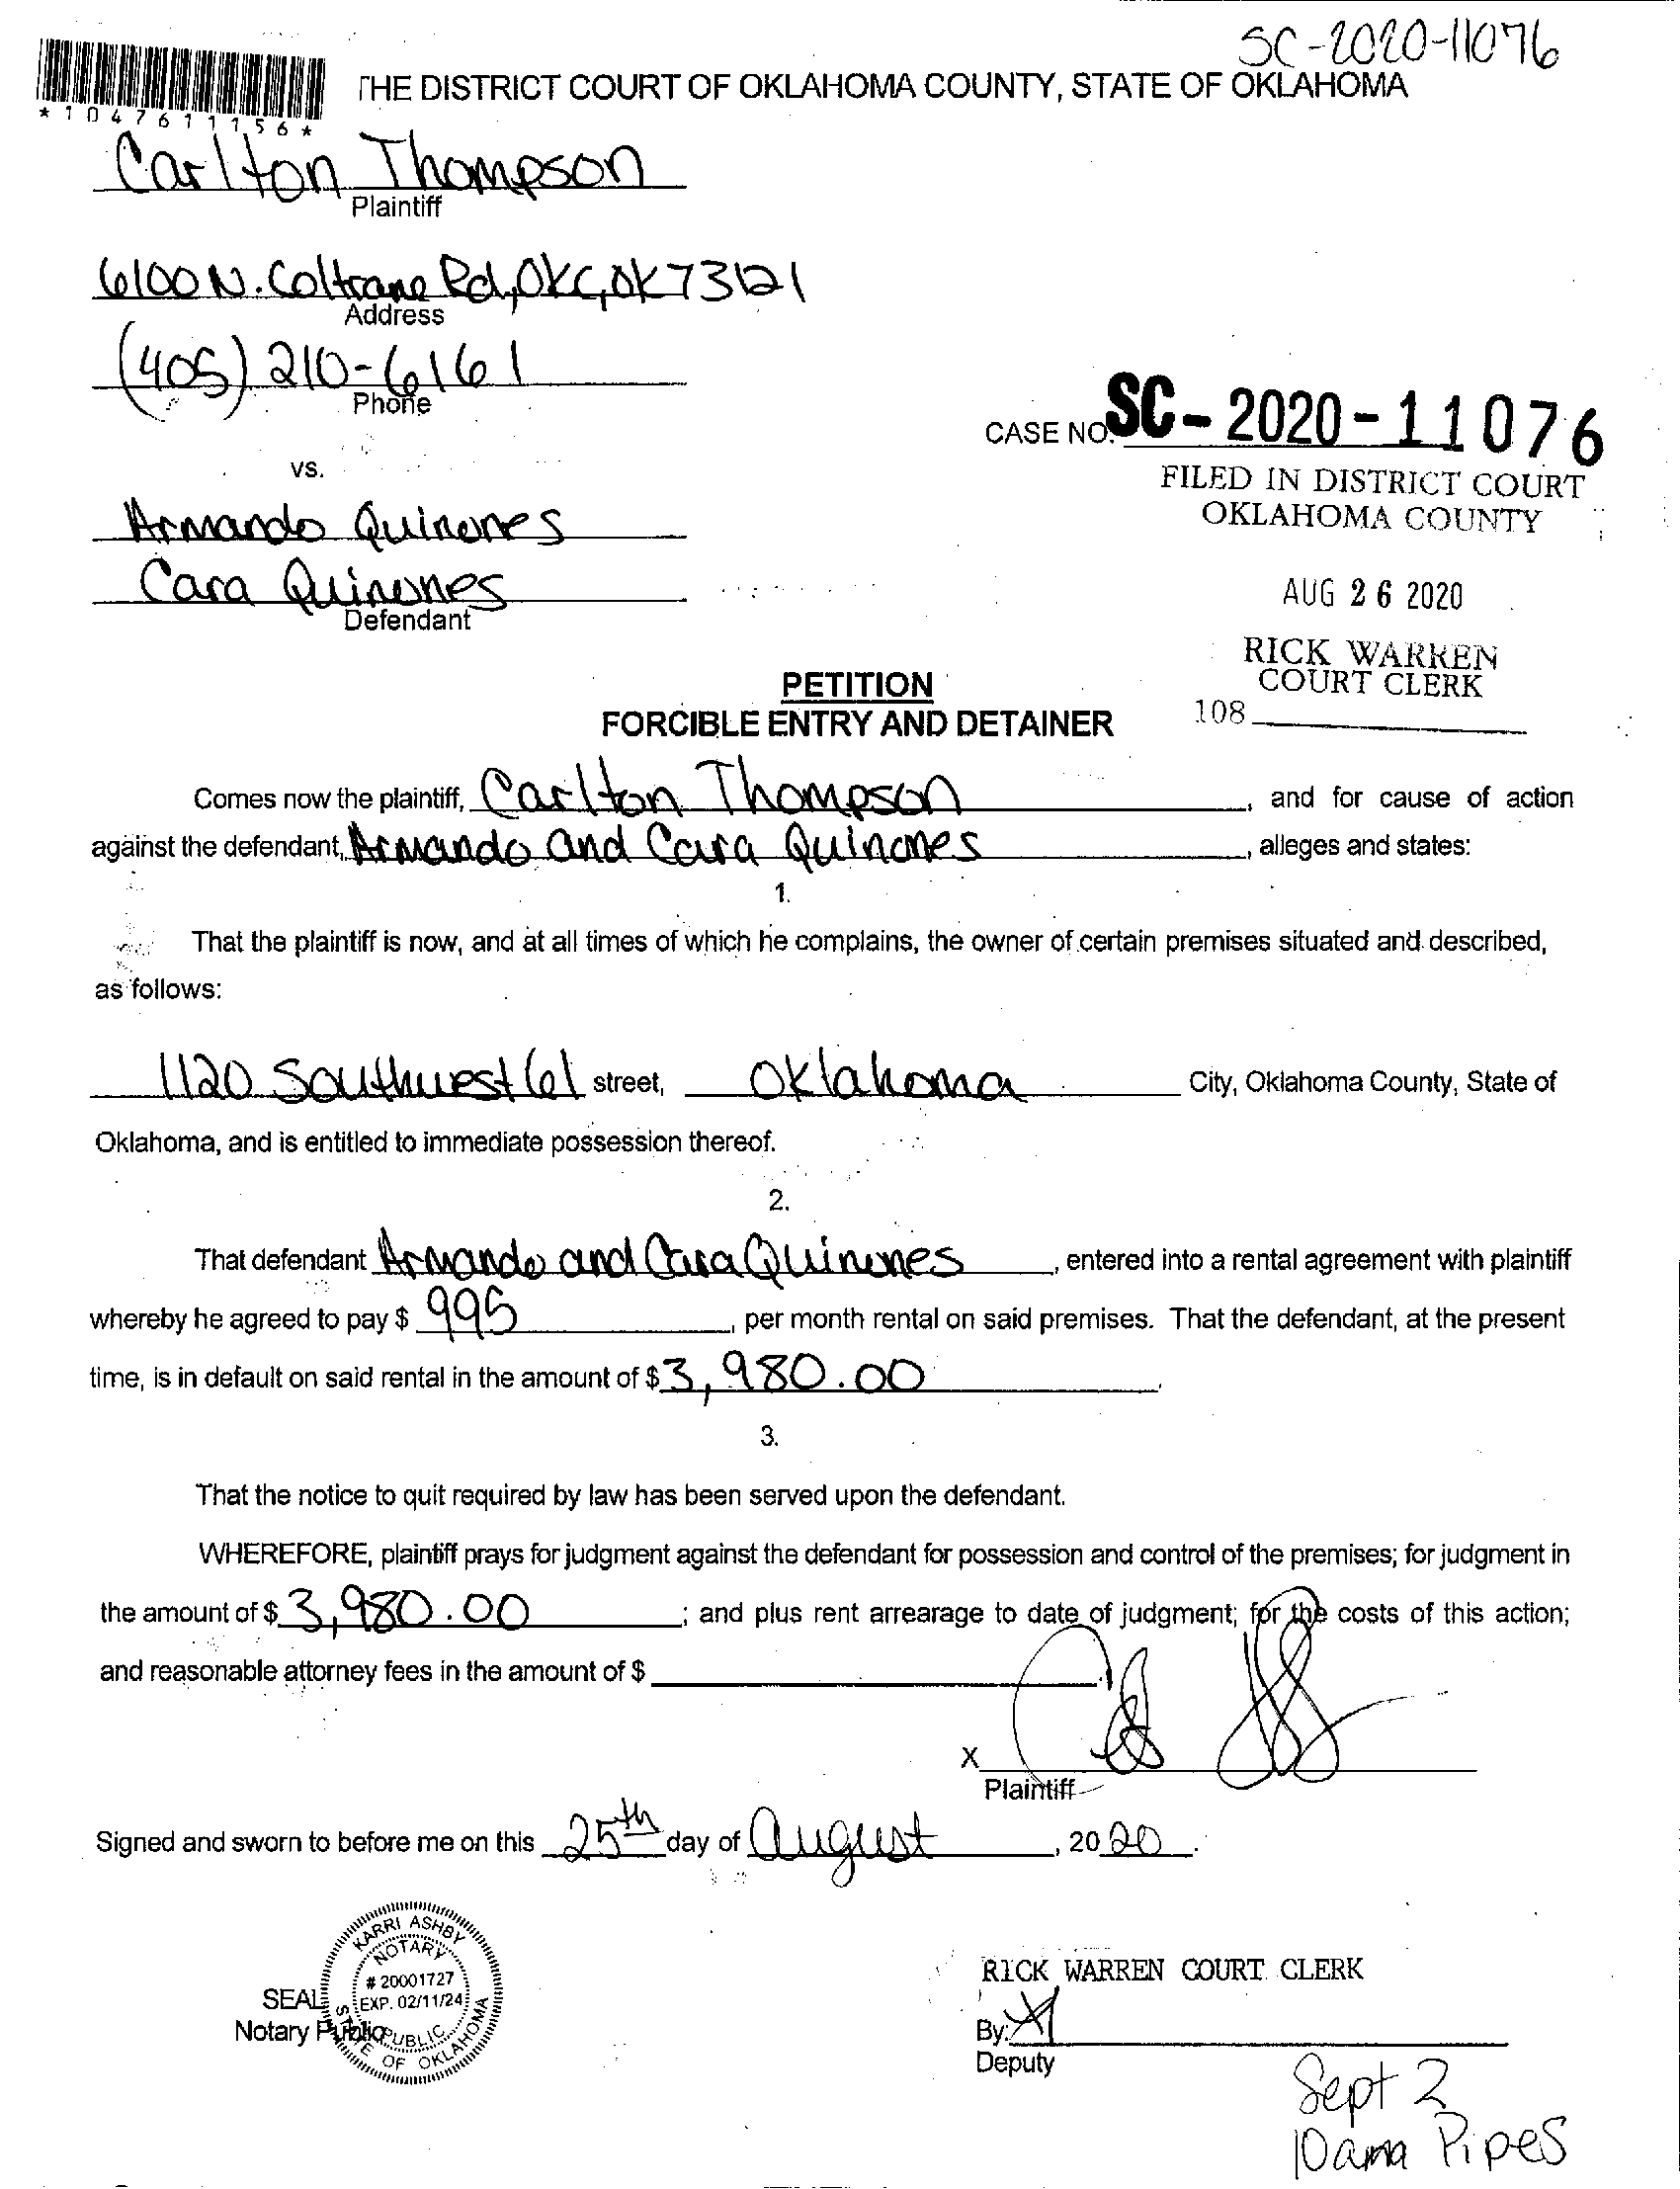 SC-2020-11076
THE DISTRICT COURT OF OKLAHOMA COUNTY, STATE OF OKLAHOMA
*1047611156*
Carlton Thompson
Plaintiff
6100 N. Coltrane Rd, OKC, OK 73121
Address
(405) 210-6161
Phone
CASE NO. SC-2020-11076
vs.
FILED IN DISTRICT COURT
OKLAHOMA COUNTY
Armando Quinones
Cara Quinones
Defendant
AUG 26 2020
RICK WARREN
COURT CLERK
108
PETITION
FORCIBLE ENTRY AND DETAINER
Comes now the plaintiff, Carlton Thompson, and for cause of action
against the defendant, Armando and Cara Quinones, alleges and states:
1.
That the plaintiff is now, and at all times of which he complains, the owner of certain premises situated and described,
as follows:
1120 Southwest 61 street, Oklahoma City, Oklahoma County, State of
Oklahoma, and is entitled to immediate possession thereof.
2.
That defendant Armando and Cara Quinones, entered into a rental agreement with plaintiff
whereby he agreed to pay $ 995, per month rental on said premises. That the defendant, at the present
time, is in default on said rental in the amount of $3,980.00.
3.
That the notice to quit required by law has been served upon the defendant.
WHEREFORE, plaintiff prays for judgment against the defendant for possession and control of the premises; for judgment in
the amount of $ 3,980.00; and plus rent arrearage to date of judgment; for the costs of this action;
and reasonable attorney fees in the amount of $
X
Plaintiff
Signed and sworn to before me on this 25th day of August, 2020.
KARRI ASHBY
NOTARY
# 20001727
EXP. 02/11/24
PUBLIC
STATE OF OKLAHOMA
SEAL
Notary Public
RICK WARREN COURT CLERK
By:
Deputy
Sept 2
10am Pipes